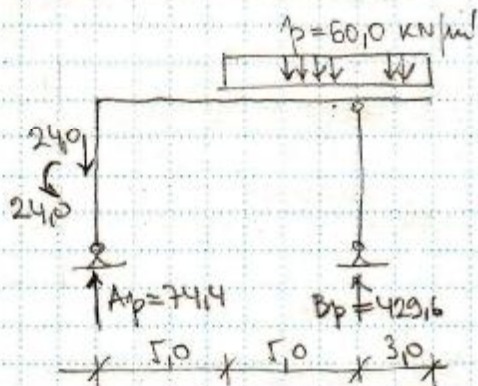 p=60,0 KN/m'
24,0
24,0
Ap=74,4
Bp=429,6
5,0 5,0 3,0